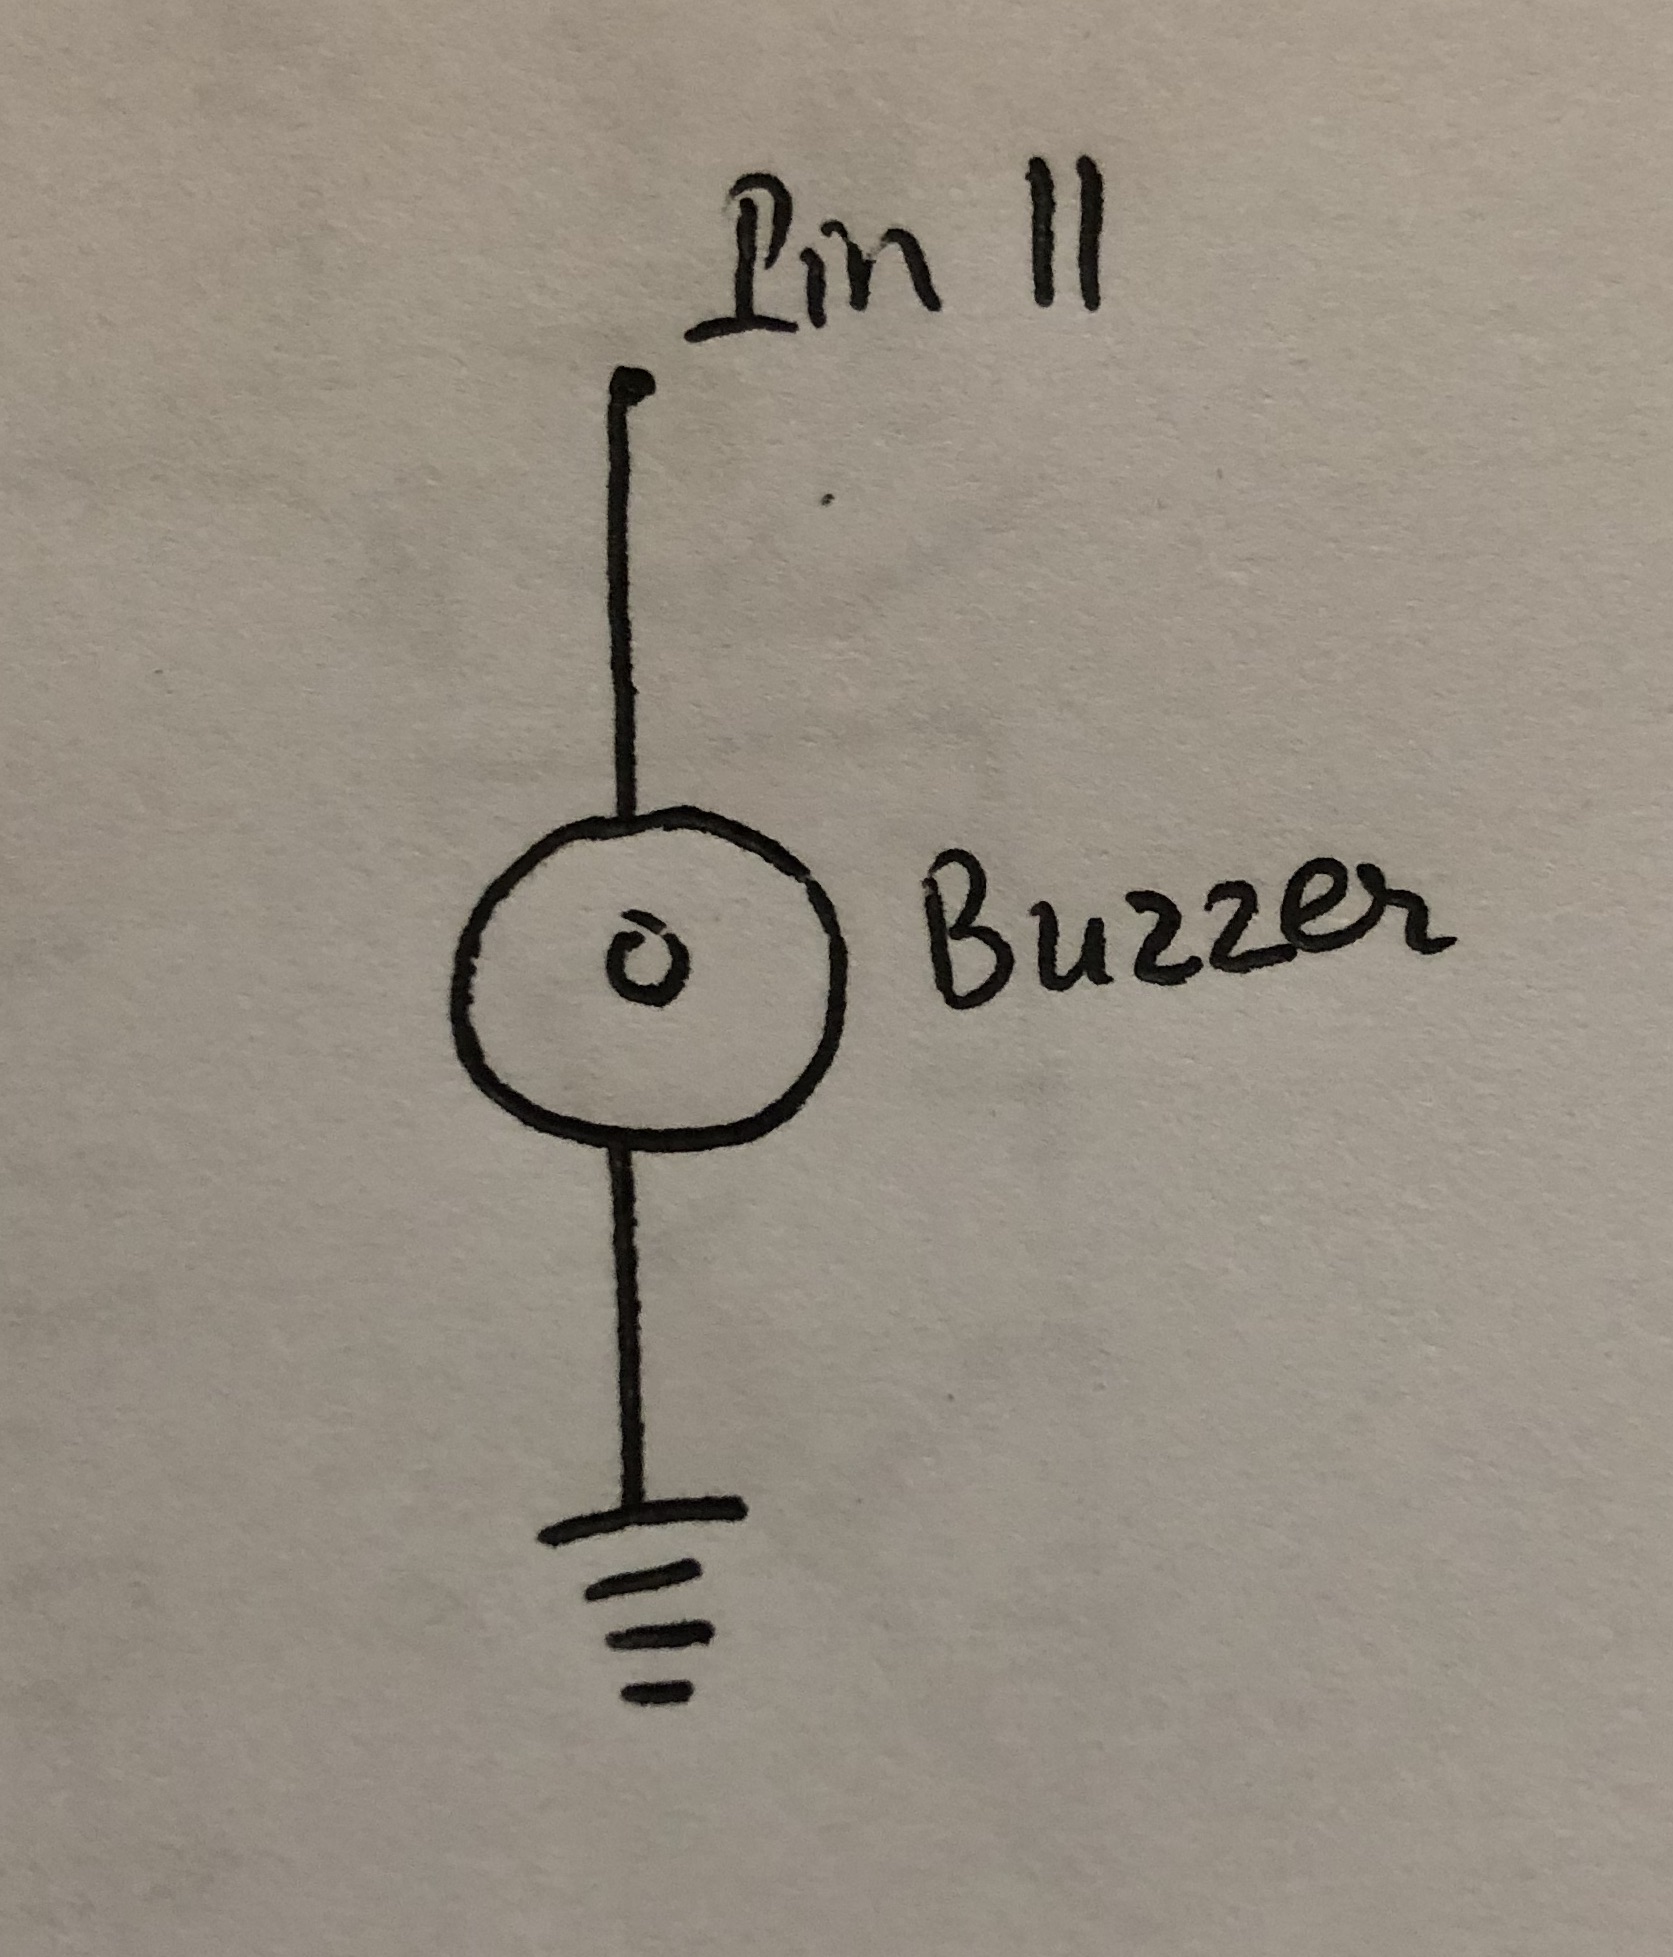 Pin 11
Buzzer